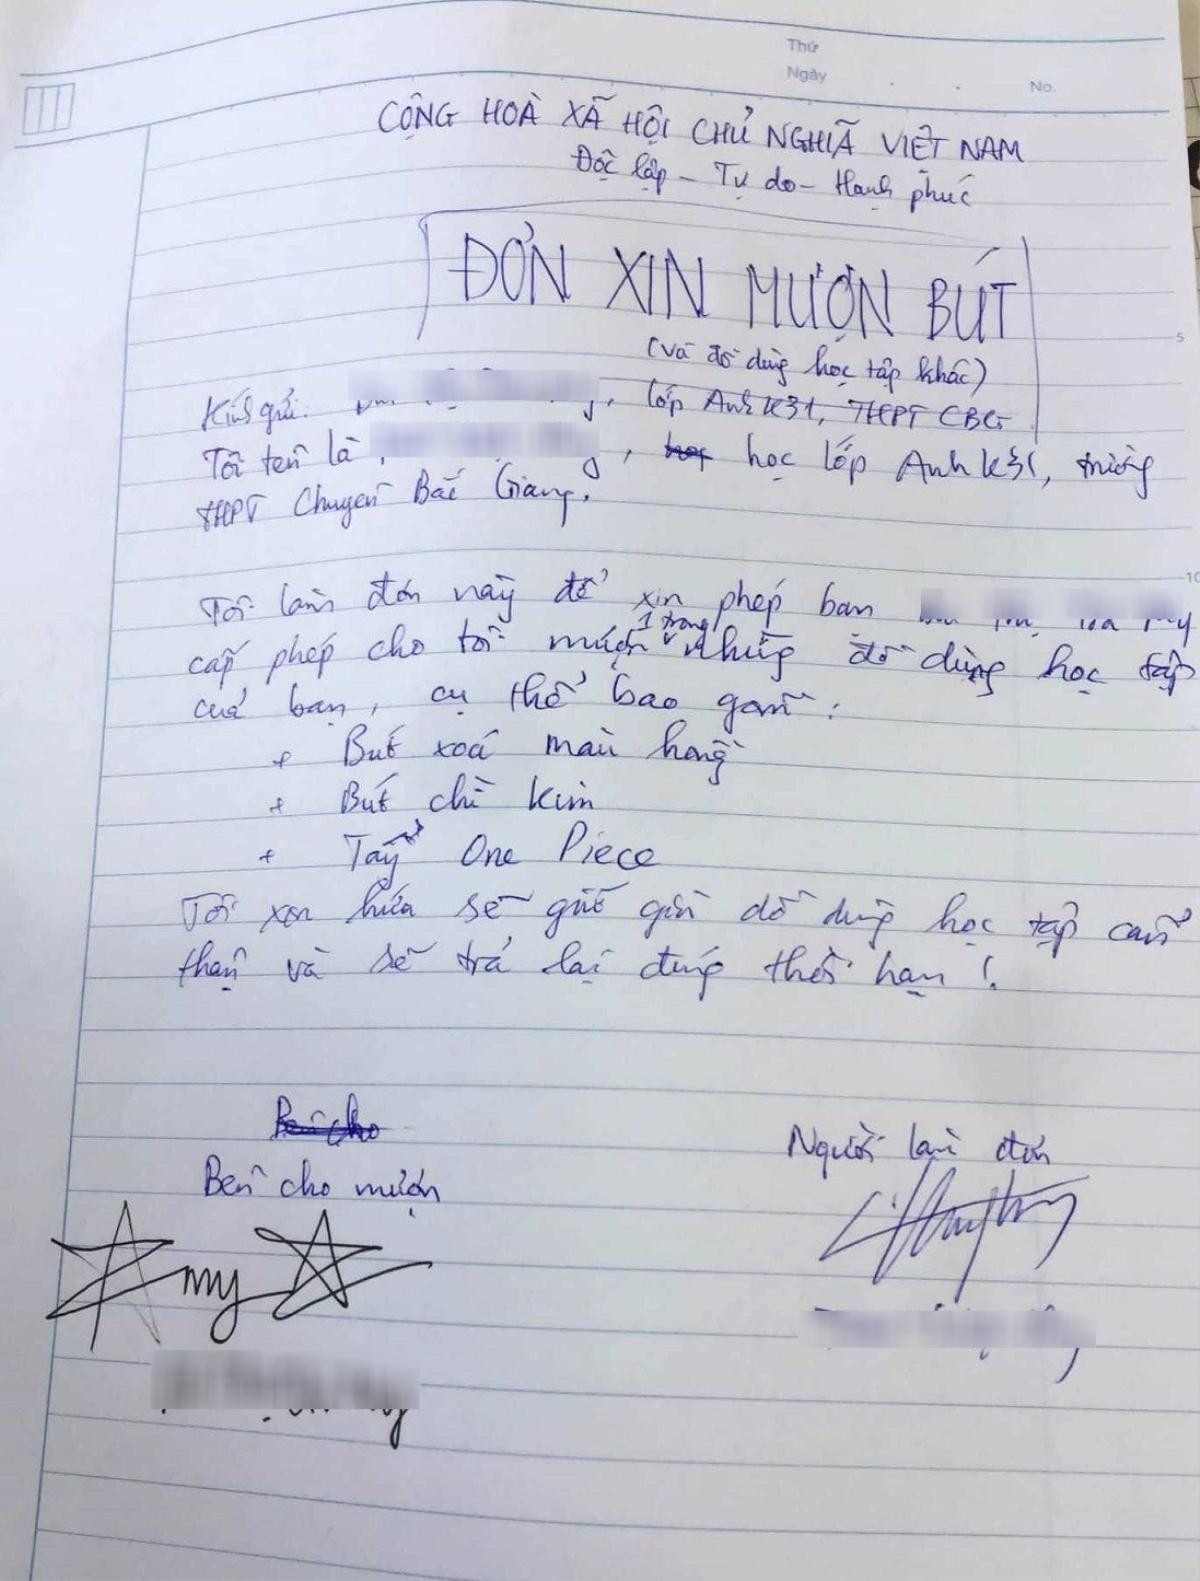 Thứ
Ngày
No.
CỘNG HOÀ XÃ HỘI CHỦ NGHĨA VIỆT NAM
Độc lập - Tự do - Hạnh phúc
ĐƠN XIN MƯỢN BÚT
(Và đồ dùng học tập khác)
5
Kính gửi: , lớp Anh K31, THPT CBG
Tôi tên là , học lớp Anh K31, trường
THPT Chuyên Bắc Giang.
10
Tôi làm đơn này để xin phép bạn
cấp phép cho tôi mượn 1 trong những đồ dùng học tập
của bạn, cụ thể bao gồm:
+ Bút xoá màu hồng
+ Bút chì kim
+ Tẩy One Piece
Tôi xin hứa sẽ giữ gìn đồ dùng học tập cẩn
thận và sẽ trả lại đúng thời hạn!
Bên cho
Người làm đơn
Bên cho mượn
my